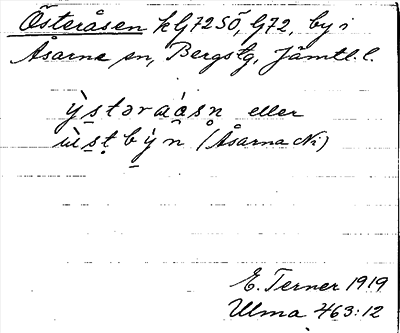 Österåsen kG72SÖ, G72, by i
Åsarne sn, Bergs tg, Jämtl. l.
ỳstəraásn̥ eller
ùistbýn (Åsarna Ni)
E. Terner 1919
Ulma 463:12